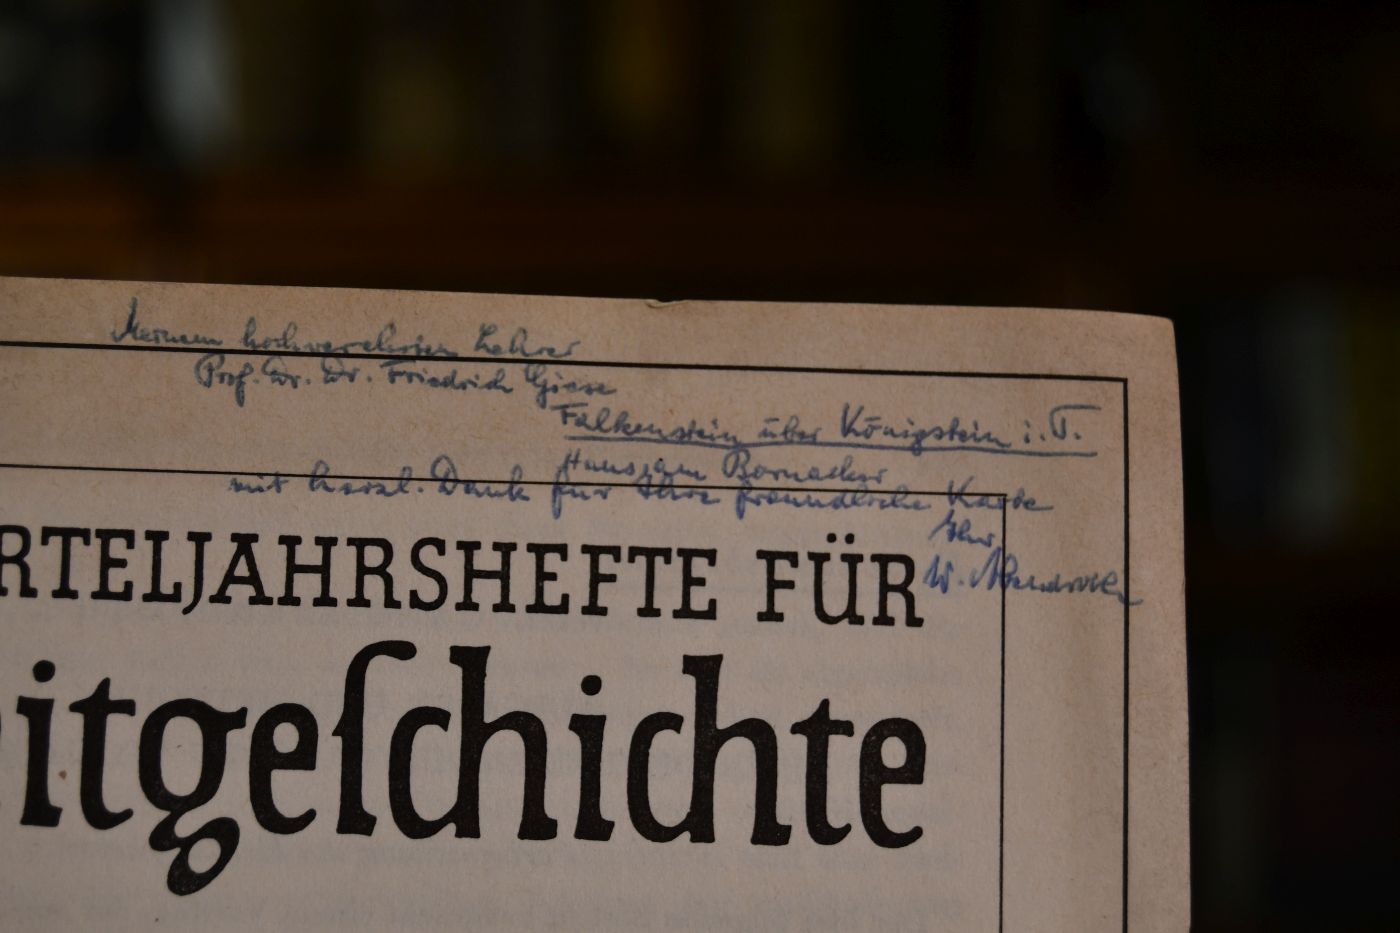 Meinem hochverehrten Lehrer
Prof. Dr. Dr. Friedrich Giese
Falkenstein über Königstein i. T.
Haus am
mit herzl. Dank für Ihre freundliche Karte
Ihr
W.
RTELJAHRSHEFTE FÜR
itgeſchichte